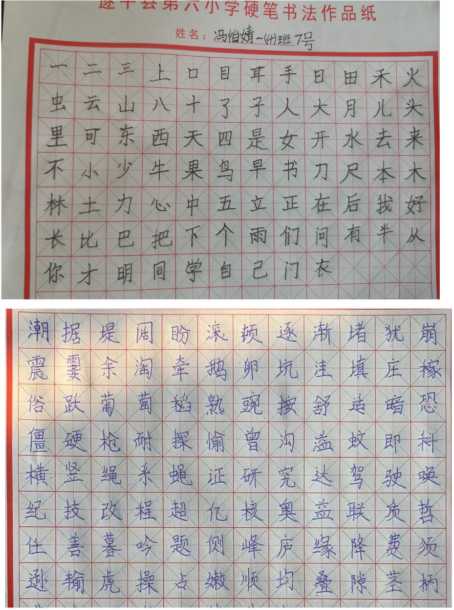 遂平县第六小学硬笔书法作品纸
姓名：冯怡婧一(4)班7号
一二三上口目耳手日田禾火
虫云山八十了子人大月儿头
里可东西天四是女开水去来
不小少牛果鸟早书刀尺本木
林土力心中五立正在后我好
长比巴把下个雨们问有半从
你才明同学自己门衣
潮据堤阔盼滚顿逐渐堵犹崩
震霎余淘牵鹅卵坑洼填庄稼
俗跃葡萄稻熟豌按舒适暗恐
僵硬枪耐探愉曾沟溢蚊即科
横竖绳系蝇证研究达驾驶唤
纪技改程超亿核奥益联质哲
任善暮吟题侧峰庐缘降费须
逊输虎操占嫩顺均叠隙茎柄